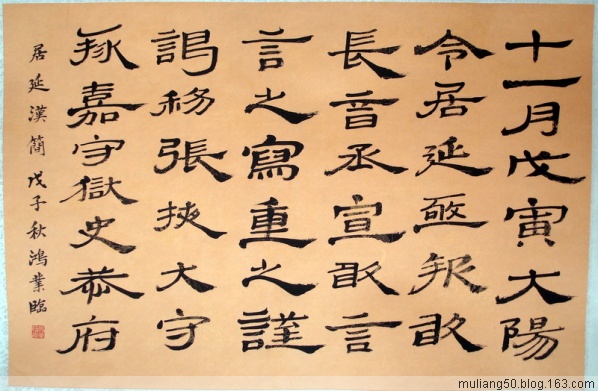 十一月戊寅大陽
令居延亟報敢
長音丞宣敢言
言之寫重之謹
移張挾大守
嘉守獄史恭府
居延漢簡 戊子秋鴻業臨
muliang50.blog.163.com